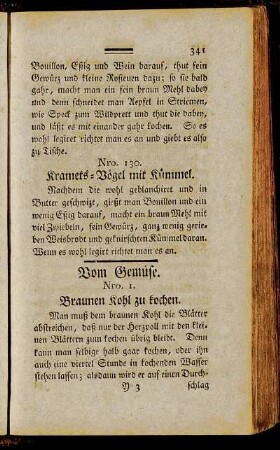 341
Bouillon, Eßig und Wein darauf, thut fein
Gewürz und kleine Rosienen dazu; so sie bald
gahr, macht man ein fein braun Mehl dabey
und denn schneidet man Aepfel in Striemen,
wie Speck zum Wildprett und thut die dabey,
und läßt es mit einander gahr kochen. So es
wohl legiret richtet man es an und giebt es also
zu Tische.
Nro. 130.
Kramets-Vögel mit Kümmel.
Nachdem die wohl geblanchiret und in
Butter geschwizt, gießt man Bouillon und ein
wenig Eßig darauf, macht ein braun Mehl mit
viel Zwiebeln, fein Gewürz, ganz wenig gerie-
ben Weisbrodt und geknirschten Kümmel daran.
Wenn es wohl legirt richtet man es an.
Vom Gemüse.
Nro. 1.
Braunen Kohl zu kochen.
Man muß dem braunen Kohl die Blätter
abstreichen, daß nur der Herzpoll mit den klei-
nen Blättern zum kochen übrig bleibt. Denn
kann man selbige halb gaar kochen, oder ihn
auch eine viertel Stunde in kochenden Wasser
stehen lassen; alsdann wird er auf einen Durch-
Y 3 schlag